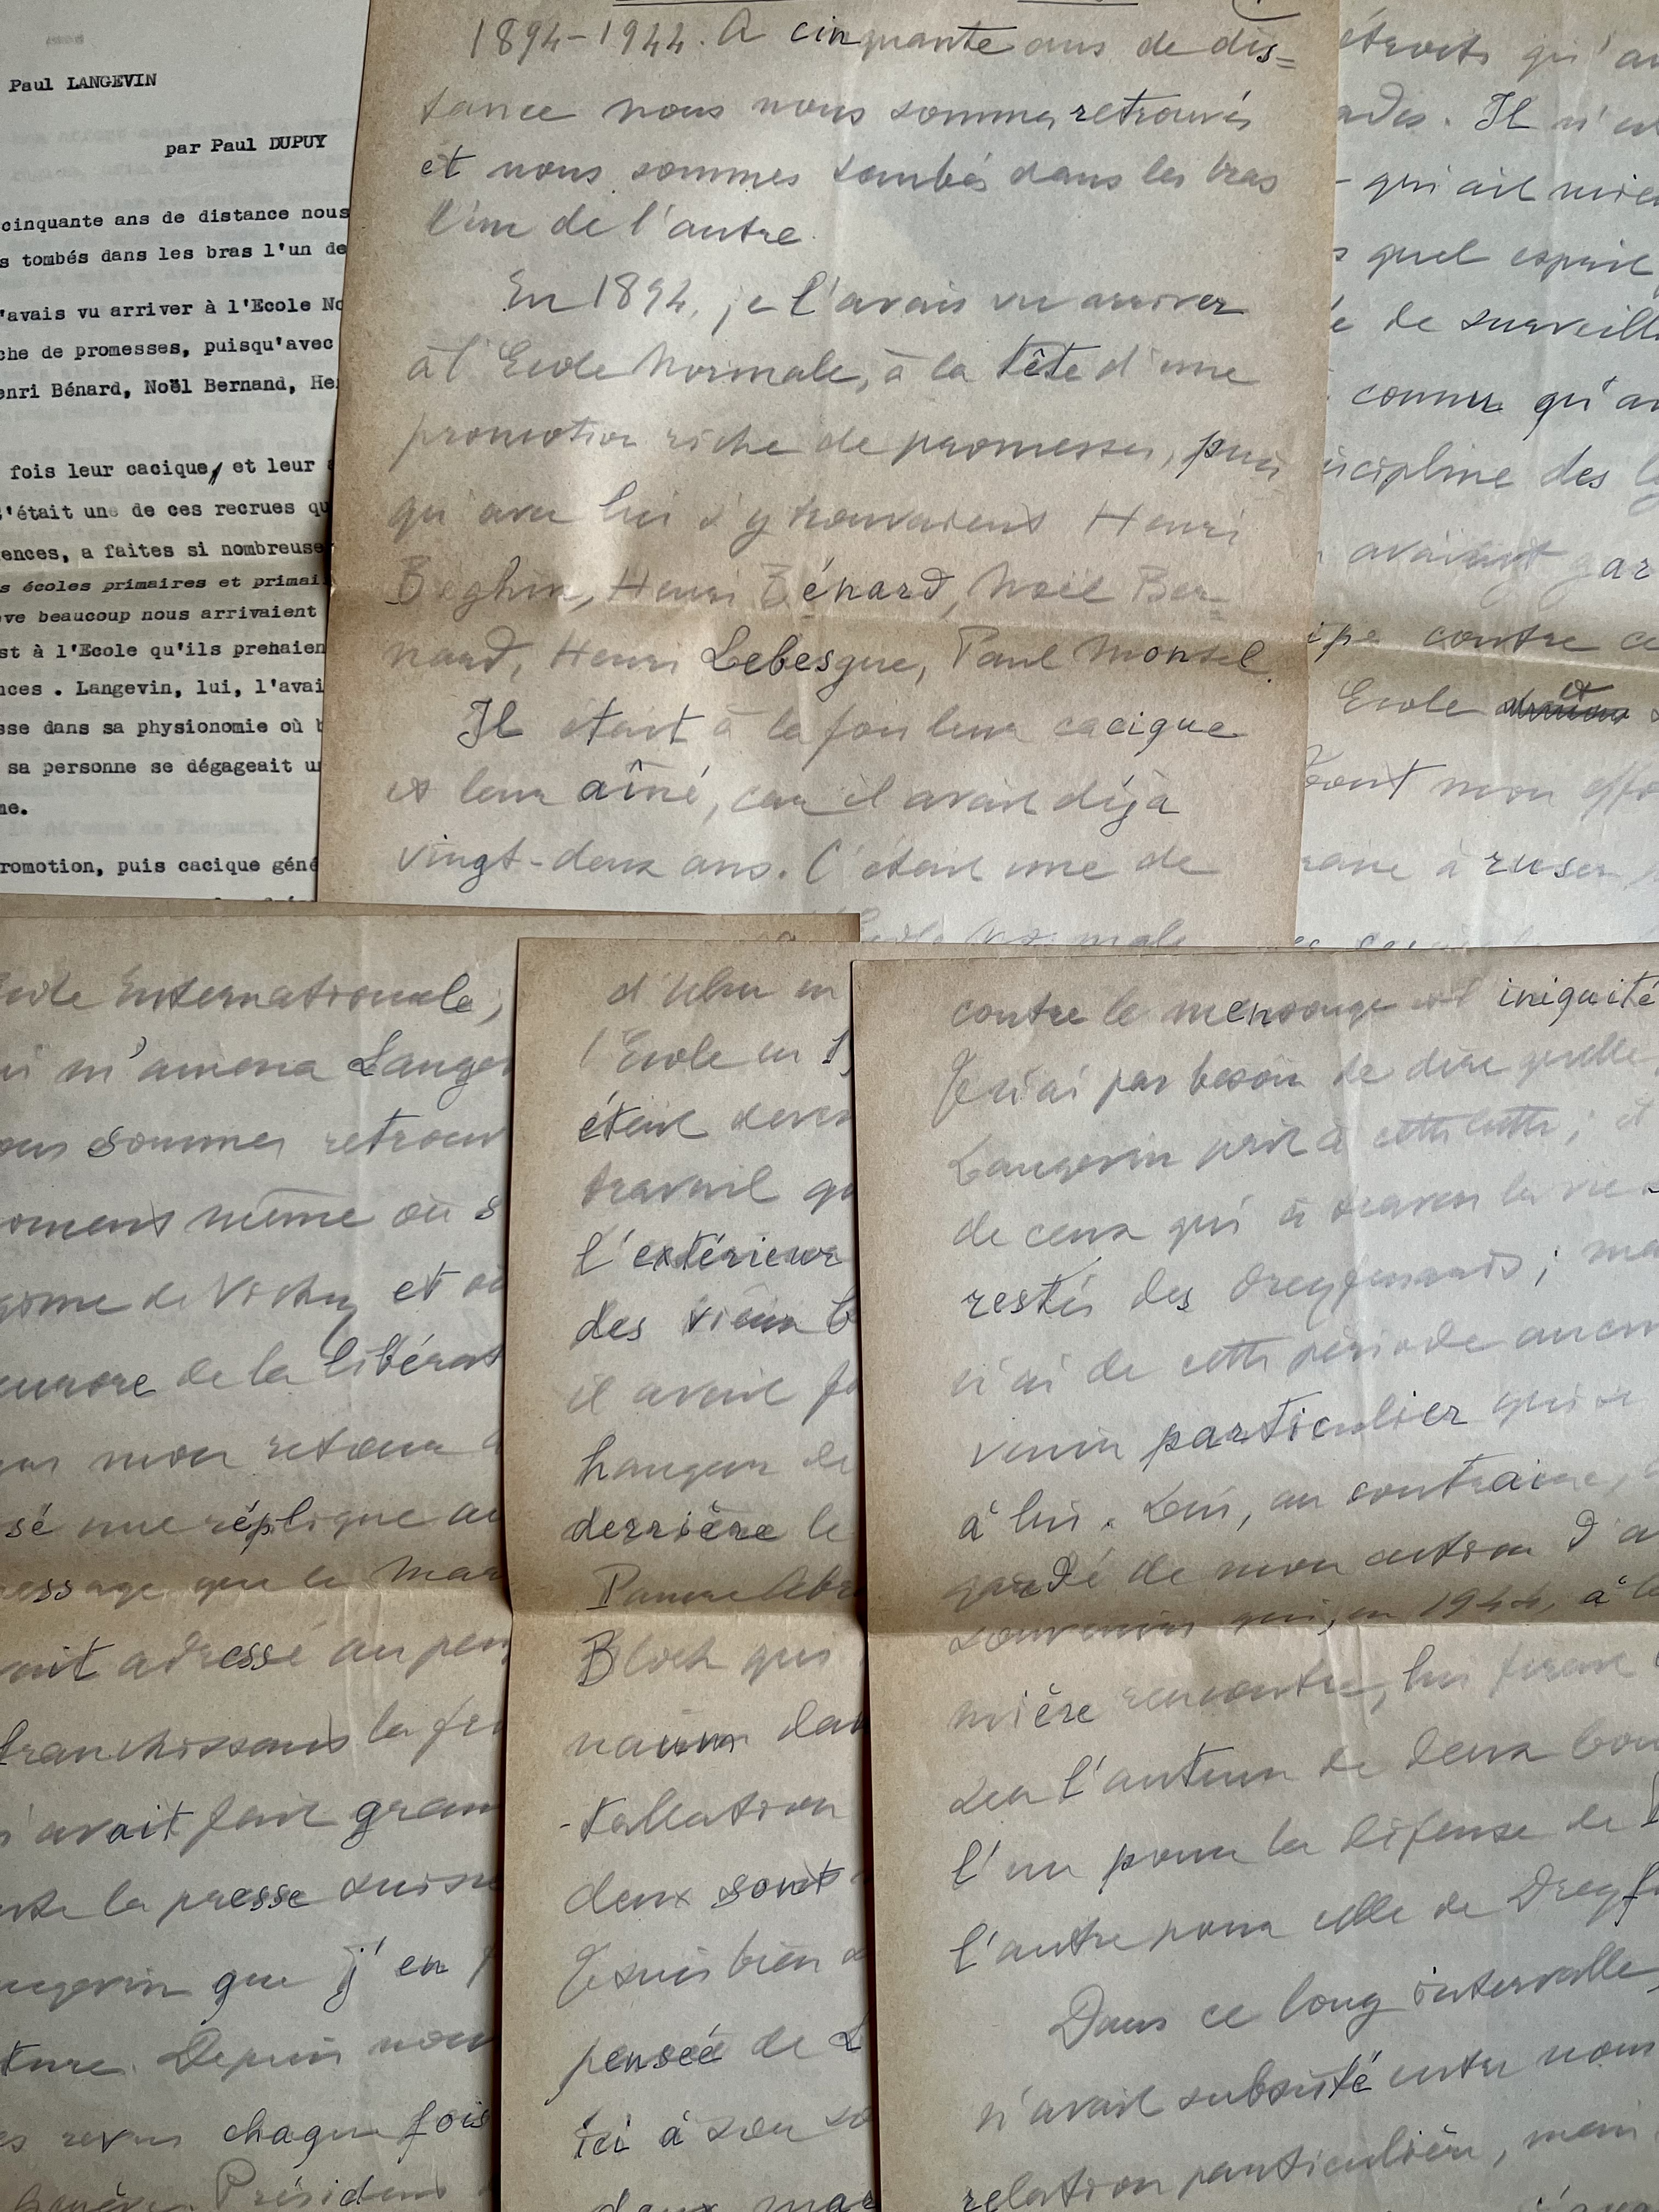 Paul LANGEVIN
par Paul DUPUY
cinquante ans de distance nous
s tombés dans les bras l'un de
'avais vu arriver à l'Ecole No
che de promesses, puisqu'avec
enri Bénard, Noël Bernand, He
fois leur cacique, et leur
C'était une de ces recrues qu
ences, a faites si nombreuse
s écoles primaires et primai
ve beaucoup nous arrivaient
st à l'Ecole qu'ils prenaien
nces . Langevin, lui, l'avai
sse dans sa physionomie où b
sa personne se dégageait u
me.
romotion, puis cacique géné
1894-1944. A cinquante ans de dis=
tance nous nous sommes retrouvés
et nous sommes tombés dans les bras
l'un de l'autre.
En 1894, je l'avais vu arriver
à l'Ecole Normale, à la tête d'une
promotion riche de promesses, puis
qu'avec lui s'y trouvaient Henri
Beghin, Henri Bénard, Noël Ber=
nard, Henri Lebesgue, Paul Montel.
Il était à la fois leur cacique
et leur aîné, car il avait déjà
vingt-deux ans. C'était une de
étroits qu'au
ades. Il n'es
- qui ait mieu
s quel esprit
e de surveill
connu qu'au
iscipline des ly
avaient gar
ipe contre ce
Ecole et
tout mon effo
raine à ruser
cole Internationale,
ui m'amena Lange
ous sommes retrouv
oment même où s
gime de Vichy et où
aurore de la libérat
mon retour
sé une réplique au
essage que le mar
ait adressé au peu
franchissant la fr
n'avait fait gran
ute la presse suisse
ngevin que j'en f
ture. Depuis nous
es revus chaque fois
Genève. Président
l'Ecole en 1
était deven
travail qu
l'extérieur
des vieux b
il avait fa
hangar de
derrière le
Pauvre Abra
Bloch qui
dan
-tallation
deux sont
Je suis bien
pensée de L
ici à son so
deux mar
contre le mensonge et iniquité
Je n'ai pas besoin de dire quelle
Langevin prit à cette lutte ; et
de ceux qui à travers la vie
restés des dreyfusards ; ma
n'ai de cette période aucun
venir particulier qui se
à lui. Lui, au contraire,
gardé de mon action d'a
souvenirs qui, en 1944, à la
mière rencontre, lui firent
ser l'auteur de deux bou
l'un pour la défense de
l'autre pour celle de Dreyf
Dans ce long intervalle,
n'avait subsisté entre nous
relation particulière, mais